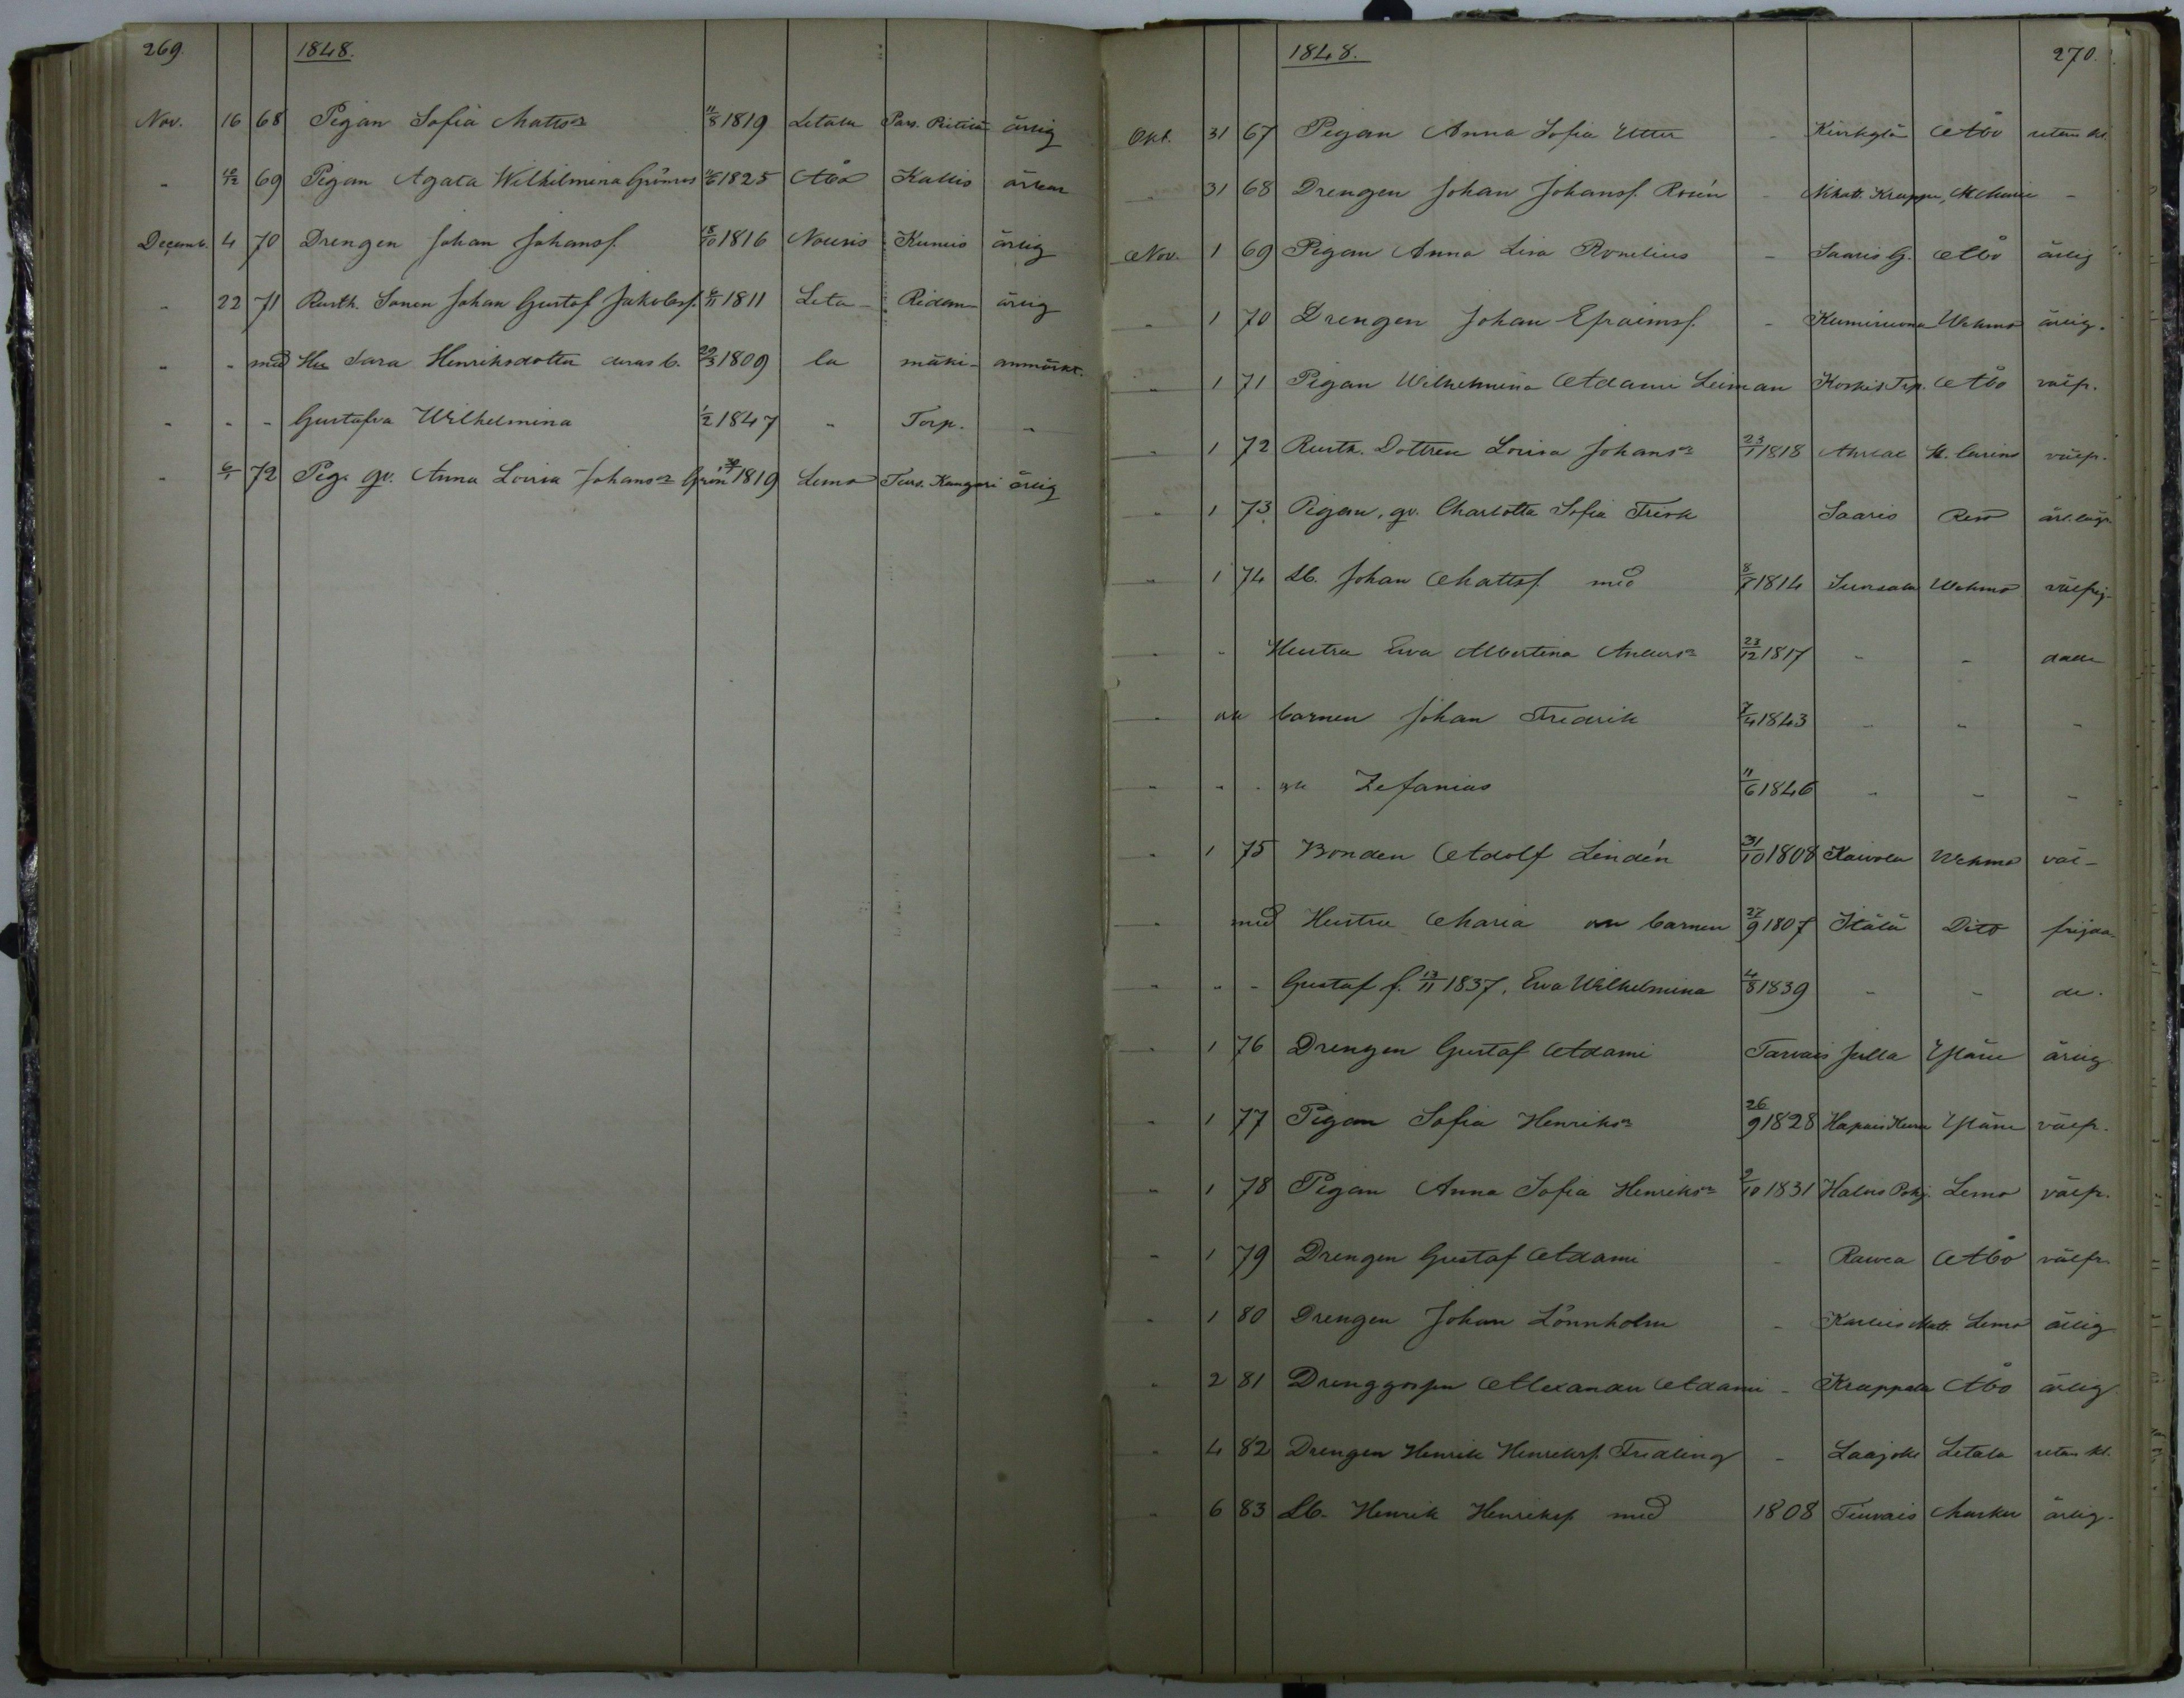 269. 1848.
Nov. 16 68 Pigan Sofia Mattsdr 11/8 1819 Letala Pars. Pietilä ärlig
" 12 69 Pigan Agata Wilhelmina Grönroos 1825 Åbo Kallis
Decemb. 4 70 Drengen Johan Johansf. 18/10 1816 Nousis Kumis ärlig
" 22 71 Rusth. Sonen Johan Gustaf Jakobsf. 6/11 1811 Leta- Ridam- ärlig
" " med Hu Sara Henriksdotter deras b. 20/3 1809 la mäki- anmärkt.
" " " Gustafva Wilhelmina 1/2 1847 " Torp. "
" 6/1 72 Piga qv. Anna Lovisa Johansdr Grön 1819 Lemo Turs. Kangari ärlig
1848. 270.
Okt. 31 67 Pigan Anna Sofia Utter - Kurkylä Åbo utan kl.
" 31 68 Drengen Johan Johansf. Rosén - Nikab. Kruppu, St Marie -
Nov. 1 69 Pigan Anna Lisa Ronelius - Saaris G. Åbo ärlig
" 1 70 Drengen Johan Efraimsf. - Wehmo ärlig.
" 1 71 Pigan Wilhelmina Adami Leiman Koskis Trp. Åbo välfr.
" 1 72 Rusth. Dottren Lovisa Johansdr 23/1 1818 St. Carins välfr.
" 1 73 Pigan, qv. Charlotta Sofia Frisk Saaris Reso
" 1 74 Lb. Johan Mattsf. med 8/7 1814 Sunsala Wehmo välfrej-
" " Hustru Eva Albertina Andersdr 23/12 1817 " " dade
" och barnen Johan Fredrik 7/4 1843 " " "
" " " och Zefanias 11/6 1846 " " "
" 1 75 Bonden Adolf Lindén 31/10 1808 Kaivola Wehmo väl-
" med Hustru Maria och barnen 27/9 1807 Itälä Dito frijda-
" " " Gustaf f. 13/11 1837, Eva Wilhelmina 4/8 1839 " " de.
" 1 76 Drengen Gustaf Adami Tarvais Julla Yläne ärlig
" 1 77 Pigan Sofia Henriksdr 26/9 1828 Yläne välfr.
" 1 78 Pigan Anna Sofia Henriksdr 2/10 1831 Halus Pohj. Lemo välfr.
" 1 79 Drengen Gustaf Adami - Åbo välfr.
" 1 80 Drengen Johan Lönnholm - Lemo ärlig
" 2 81 Drenggossen Alexander Adami - Kruppala Åbo ärlig
" 4 82 Drengen Henrik Henriksf. Fridling - Laajoki Letala utan kl.
" 6 83 Lb. Henrik Henriksf. med 1808 Tiuvais Masku ärlig.